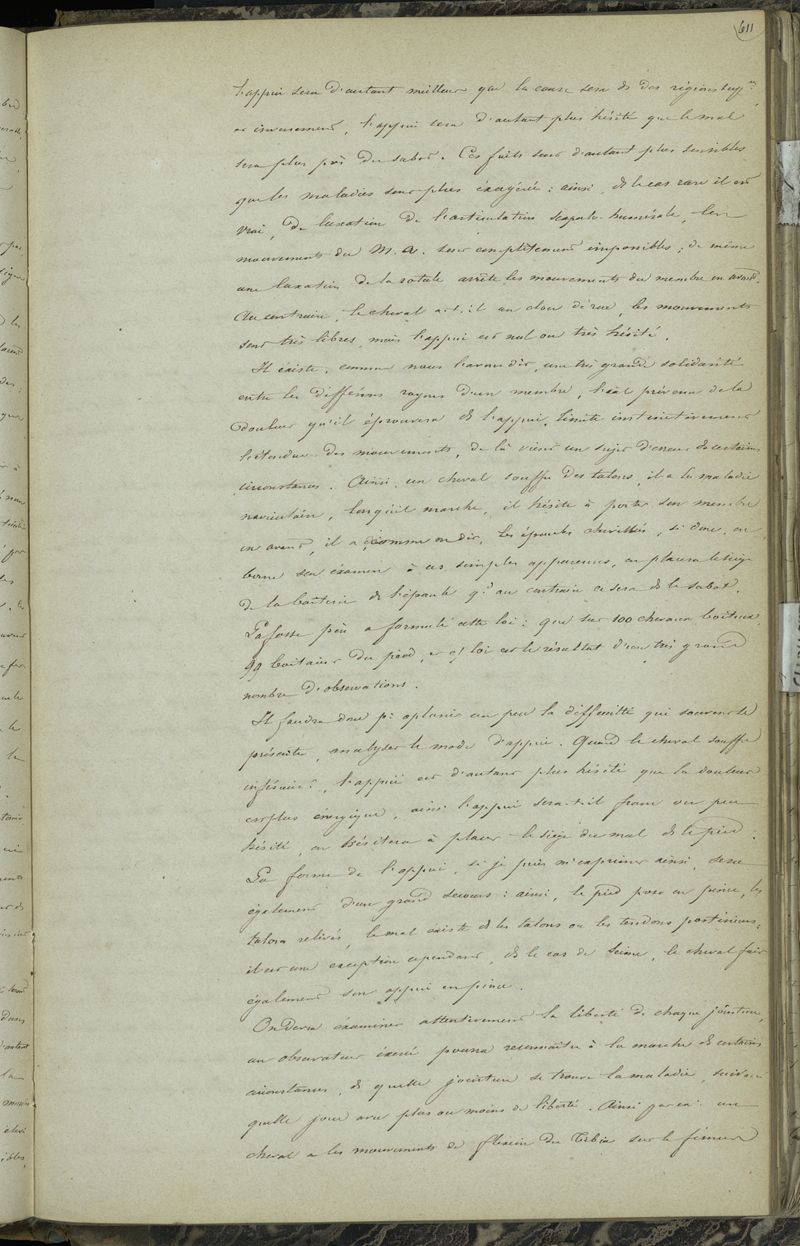 611
l'appui sera d'autant meilleur que la cause sera ds des régions supres
et inversement, l'appui sera d'autant plus hésité que le mal
sera plus près du sabot. Ces faits sont d'autant plus sensibles
que les maladies sont plus exagérées : ainsi, ds le cas rare il est
vrai, de luxation de l'articulation scapulo-humérale, les
mouvements du M. A. sont complètement impossibles ; de même
une luxation de la rotule arrête les mouvements du membre en avant.
Au contraire, le cheval a-t-il un clou de rue, les mouvements
sont très libres, mais l'appui est nul ou très hésité.
Il existe, comme nous l'avons dit, une très grande solidarité
entre les différents rayons d'un membre, l'axal prévenu de la
douleur qu'il éprouvera ds l'appui, limite instinctivement
l'étendue des mouvements, de là vient un sujet d'erreur ds certaines
circonstances. Ainsi, un cheval souffre des talons, il a la maladie
naviculaire, lorsqu'il marche, il hésite à porter son membre
en avant, il a comme on dit, les épaules chevillées, si donc, on
borne son examen à ces simples apparences, on placera le siège
de la boiterie ds l'épaule qd au contraire ce sera ds le sabot.
Lafosse père a formulé cette loi : que sur 100 chevaux boiteux,
99 boitaient du pied, et ctte loi est le résultat d'un très grand
nombre d'observations.
Il faudra donc pr aplanir un peu la difficulté qui souvent se
présente, analyser le mode d'appui. Quand le cheval souffre
inférieurt, l'appui est d'autant plus hésité que la douleur
est plus énergique, ainsi l'appui sera-t-il franc ou peu
hésité, on hésitera à placer le siège du mal ds le pied.
La forme de l'appui, si je puis m'exprimer ainsi, sera
également d'un grand secours : ainsi, le pied pose en pince, les
talons relevés, le mal existe ds les talons ou les tendons postérieurs ;
il est une exception cependant, ds le cas de seime, le cheval fait
également son appui en pince.
On devra examiner attentivement la liberté de chaque jointure,
un observateur exercé pourra reconnaître à la marche ds certaines
circonstances, ds quelle jointure se trouve la maladie, suivant
quelle joue avec plus ou moins de liberté. Ainsi par ex. un
cheval a les mouvements de flexion du tibia sur le fémur